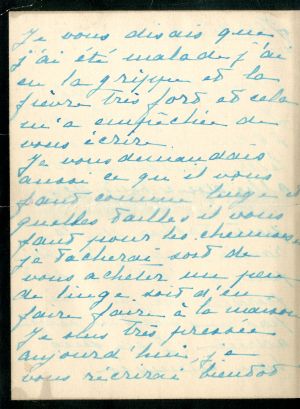 Je vous disais que
j'ai été malade j'ai
eu la grippe et la
fièvre très fort et cela
m'a empêchée de
vous écrire.
Je vous demandais
aussi ce qu'il vous
faut comme linge et
quelles tailles il vous
faut pour les chemises
je tacherai soit de
vous acheter un peu
de linge soit d'en
faire faire à la maison
Je suis très pressée
aujourd'hui, je
vous récrirai bientôt